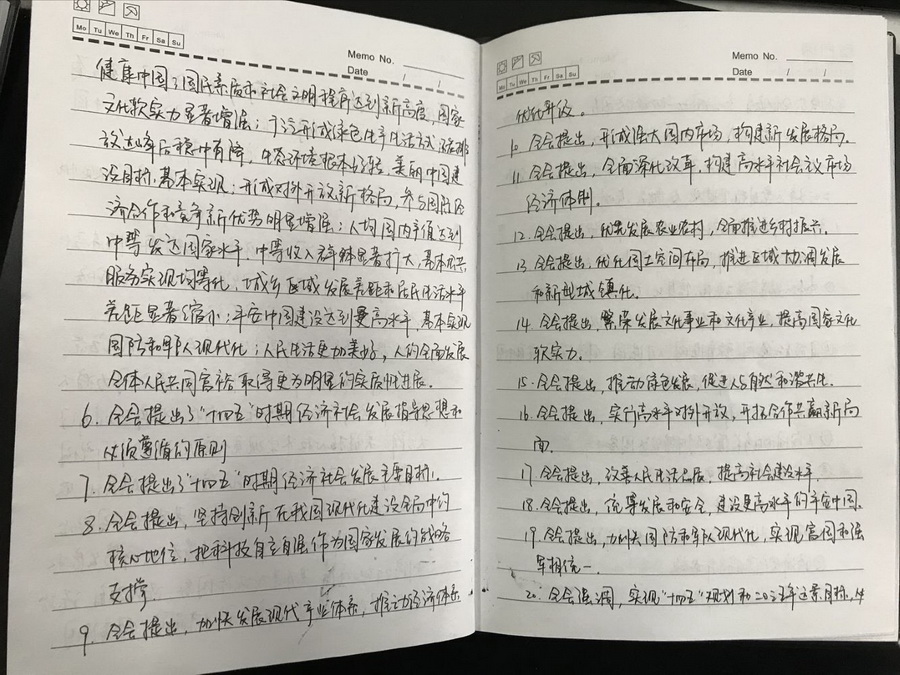 Mo Tu We Th Fr Sa Su
Memo No.
Date / /
健康中国；国民素质和社会文明程度达到新高度，国家
文化软实力显著增强；广泛形成绿色生产生活方式，碳排
放达峰后稳中有降，生态环境根本好转，美丽中国建
设目标基本实现；形成对外开放新格局，参与国际经
济合作和竞争新优势明显增强；人均国内产值达到
中等发达国家水平，中等收入群体显著扩大，基本公共
服务实现均等化，城乡区域发展差距和居民生活水平
差距显著缩小；平安中国建设达到更高水平，基本实现
国防和军队现代化；人民生活更加美好，人的全面发展
全体人民共同富裕取得更为明显的实质性进展。
6、全会提出了"十四五"时期经济社会发展指导思想和
必须遵循的原则
7、全会提出了"十四五"时期经济社会发展主要目标。
8、全会提出，坚持创新在我国现代化建设全局中的
核心地位，把科技自立自强作为国家发展的战略
支撑
9、全会提出，加快发展现代产业体系，推动经济体系
Mo Tu We Th Fr Sa Su
Memo No.
Date / /
优化升级。
10、全会提出，形成强大国内市场，构建新发展格局。
11、全会提出，全面深化改革，构建高水平社会主义市场
经济体制。
12、全会提出，优先发展农业农村，全面推进乡村振兴。
13、全会提出，优化国土空间布局，推进区域协调发展
和新型城镇化。
14、全会提出，繁荣发展文化事业和文化产业，提高国家文化
软实力。
15、全会提出，推动绿色发展，促进人与自然和谐共生。
16、全会提出，实行高水平对外开放，开拓合作共赢新局
面。
17、全会提出，改善人民生活品质，提高社会建设水平
18、全会提出，统筹发展和安全，建设更高水平的平安中国。
19、全会提出，加快国防和军队现代化，实现富国和强
军相统一。
20、全会强调，实现"十四五"规划和二〇三五年远景目标，